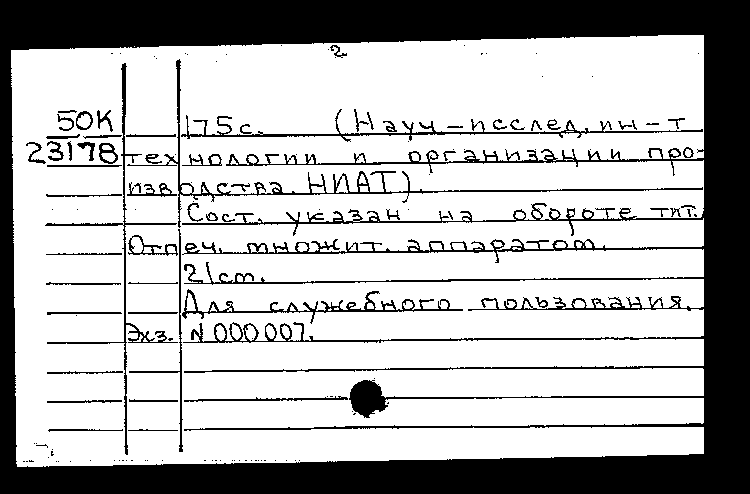 2
50К 175с. (Науч-исслед. ин-т
23178 технологии и организации про-
изводства. НИАТ).
Сост. указан на обороте тит.
Отпеч. множит. аппаратом.
21 см.
Для служебного пользования.
Экз. N 000007.